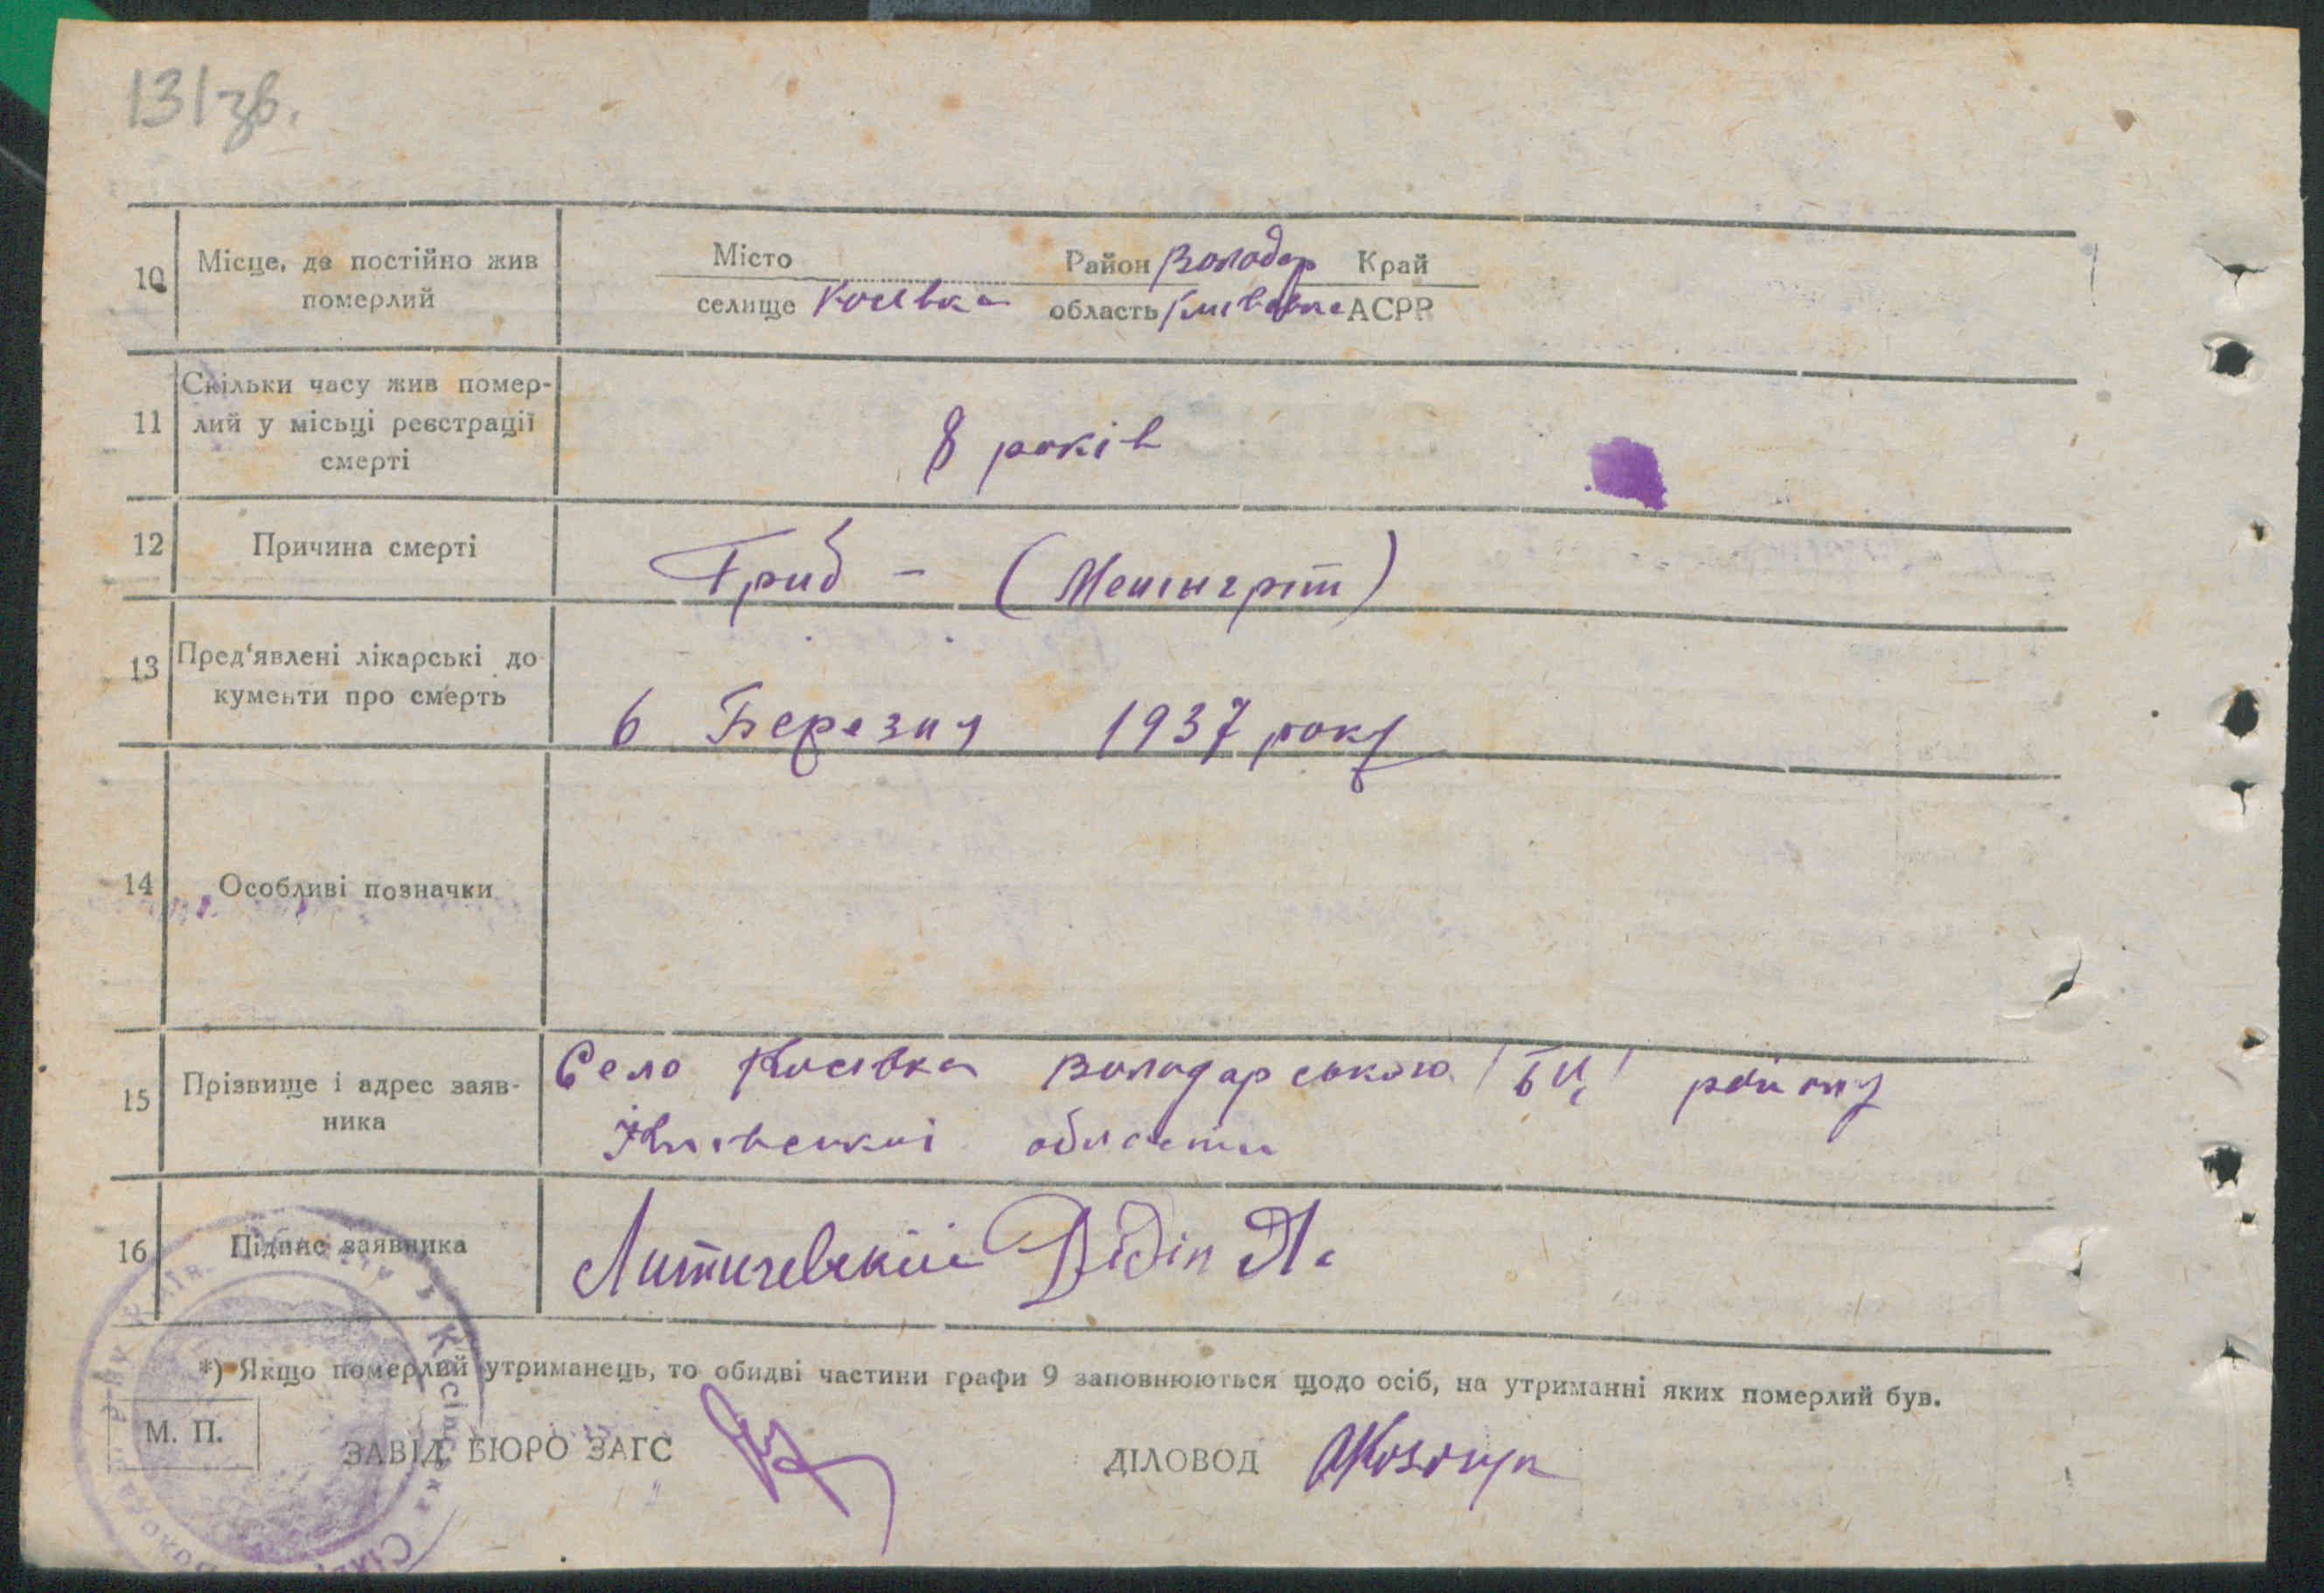 131 зв.
10 Місце, де постійно жив померлий
Місто Район Володар Край
селище Косівка область Київська АСРР
11 Скільки часу жив помер-
лий у місьці реєстрації
смерті
8 років
12 Причина смерті
Гриб - (Менінгріт)
13 Пред'явлені лікарські до
кументи про смерть
6 Березня 1937 року
14 Особливі позначки
15 Прізвище і адрес заяв-
ника
Село Косівка Володарського /БЦ/ району
Київської области
16 Підпис заявника
Литичевский Дідін
*) Якщо померлий утриманець, то обидві частини графи 9 заповнюються щодо осіб, на утриманні яких померлий був.
М. П.
ЗАВІД БЮРО ЗАГС
ДІЛОВОД